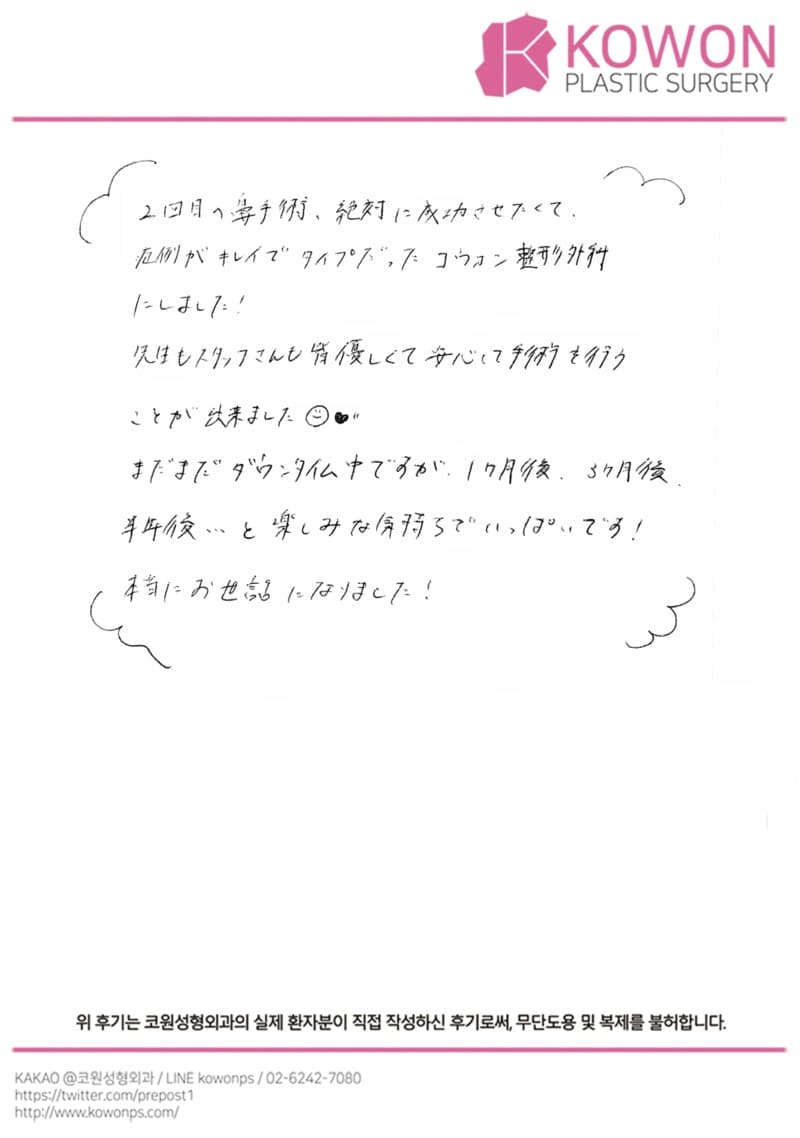 KOWON
PLASTIC SURGERY
2回目の鼻手術、絶対に成功させたくて、
症例がキレイでタイプだったコウォン整形外科
にしました!
先生もスタッフさんも皆優しくて安心して手術を行う
ことが出来ました
まだまだダウンタイム中ですが、1ヶ月後、3ヶ月後、
半年後…と楽しみな気持ちでいっぱいです!
本当にお世話になりました!
위 후기는 코원성형외과의 실제 환자분이 직접 작성하신 후기로써, 무단도용 및 복제를 불허합니다.
KAKAO @코원성형외과 / LINE kowonps / 02-6242-7080
https://twitter.com/prepost1
http://www.kowonps.com/